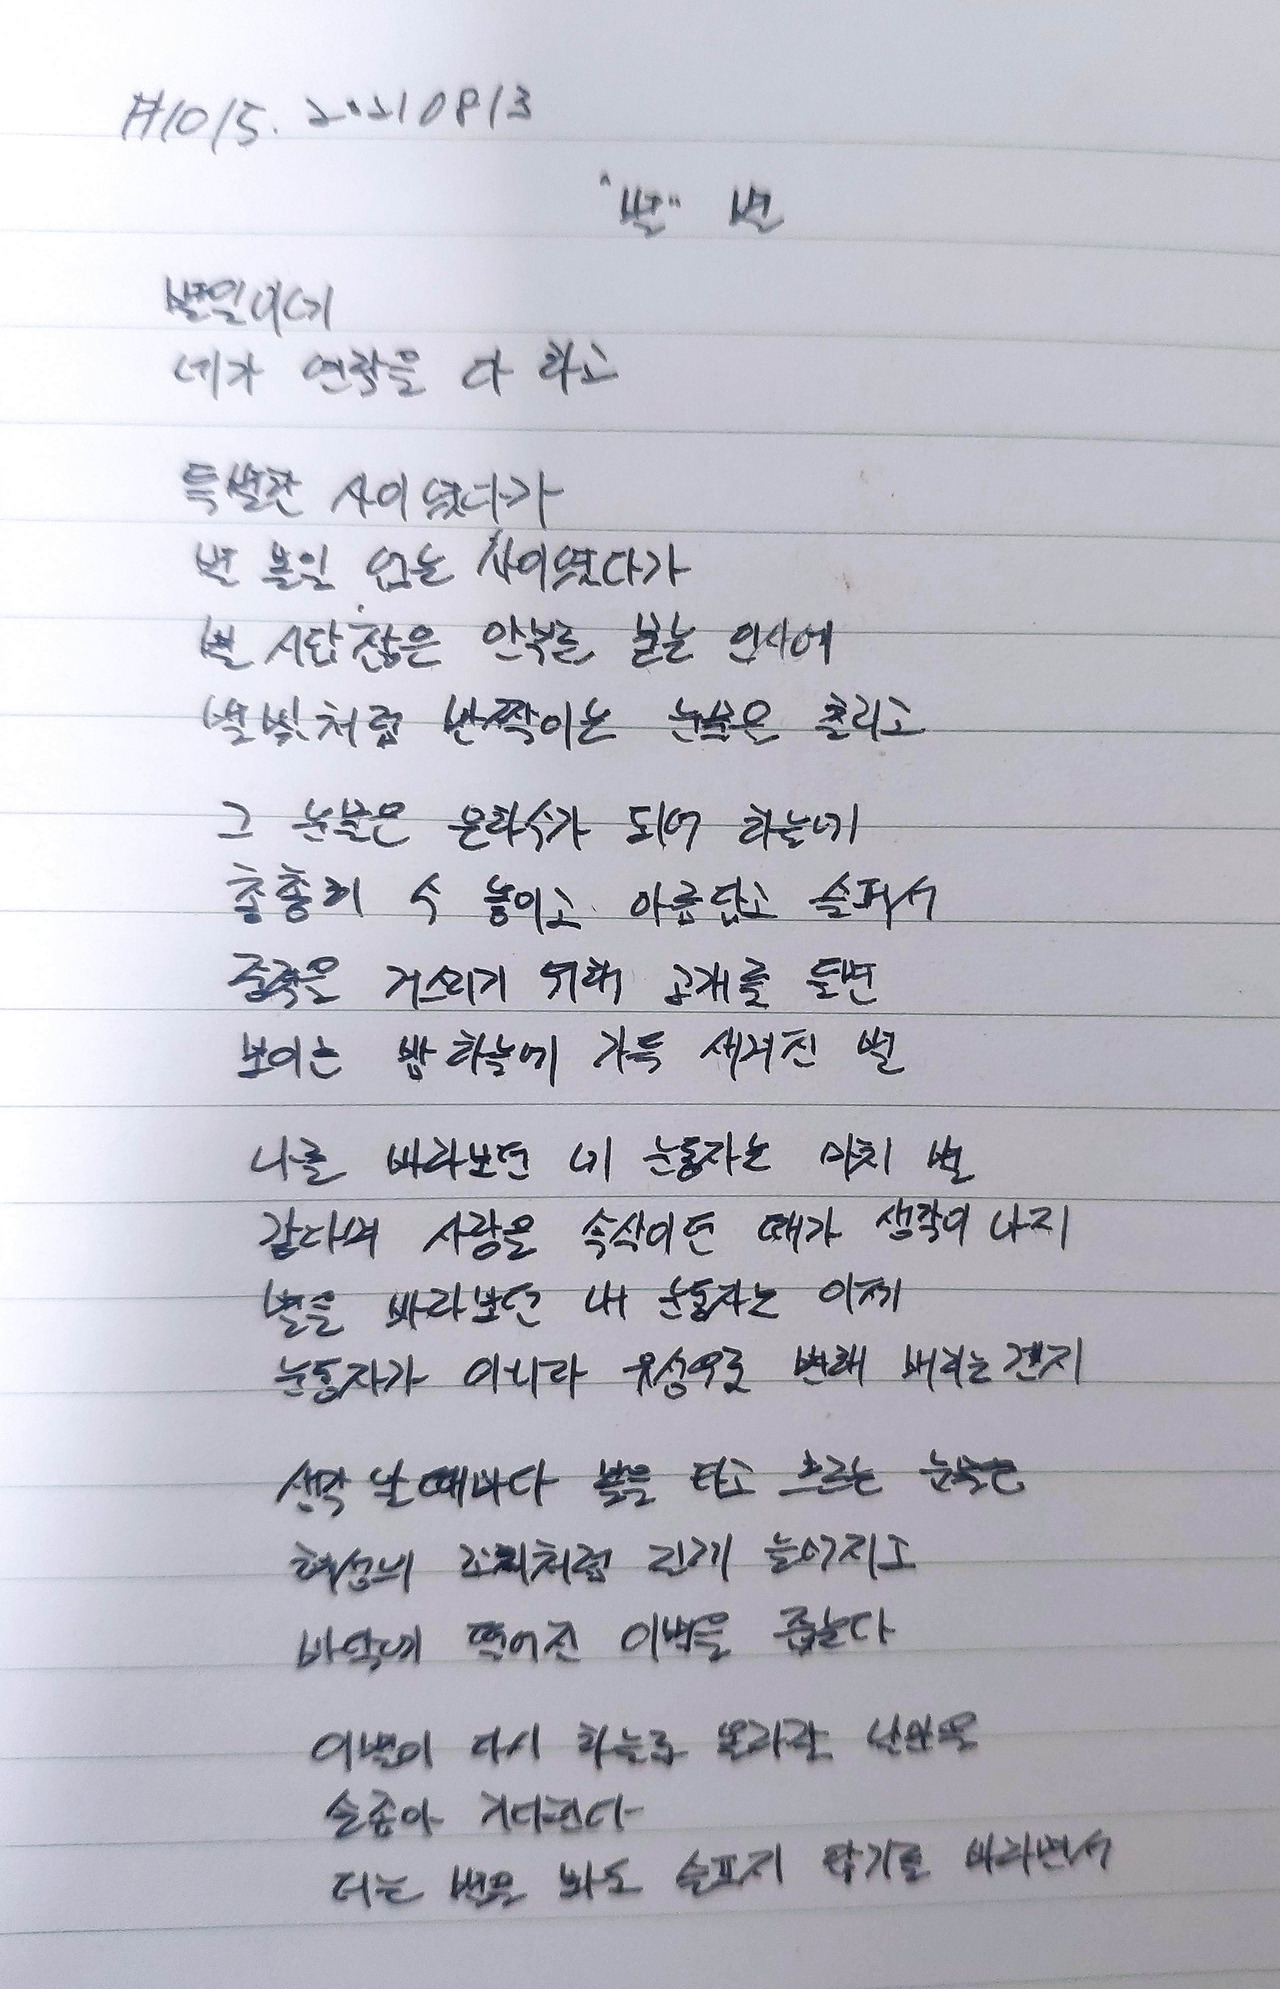 #1015. 20210813
"별" 별
별일이네
네가 연락을 다 하고
특별한 사이였다가
별 볼일 없는 사이였다가
별 시답잖은 안부를 묻는 인사에
별빛처럼 반짝이는 눈물은 흘리고
그 눈물은 은하수가 되어 하늘에
총총히 수 놓이고 아름답고 슬퍼서
중력을 거스르기 위해 고개를 들면
보이는 밤하늘에 가득 새겨진 별
나를 바라보던 네 눈동자는 마치 별
같다며 사랑을 속삭이던 때가 생각이 나지
별을 바라보던 내 눈동자는 이제
눈동자가 아니라 유성우로 변해 버리는건지
생각 날 때마다 볼을 타고 흐르는 눈물은
혜성의 꼬리처럼 길게 늘어지고
바닥에 떨어진 이별을 줍는다
이별이 다시 하늘로 올라갈 날만을
손꼽아 기다린다
더는 별을 봐도 슬프지 않기를 바라면서